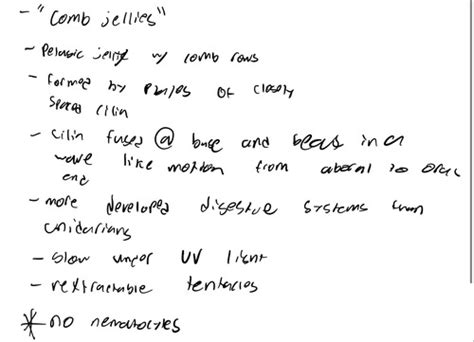 - "Comb jellies"
- Pelagic jelly w/ comb rows
- formed by plates of closely
spaced cilia
- cilia fused @ base and beats in a
wave like motion from aboral to oral
end
- more developed digestive systems than
cnidarians
- glow under UV light
- retractable tentacles
* no nematocytes